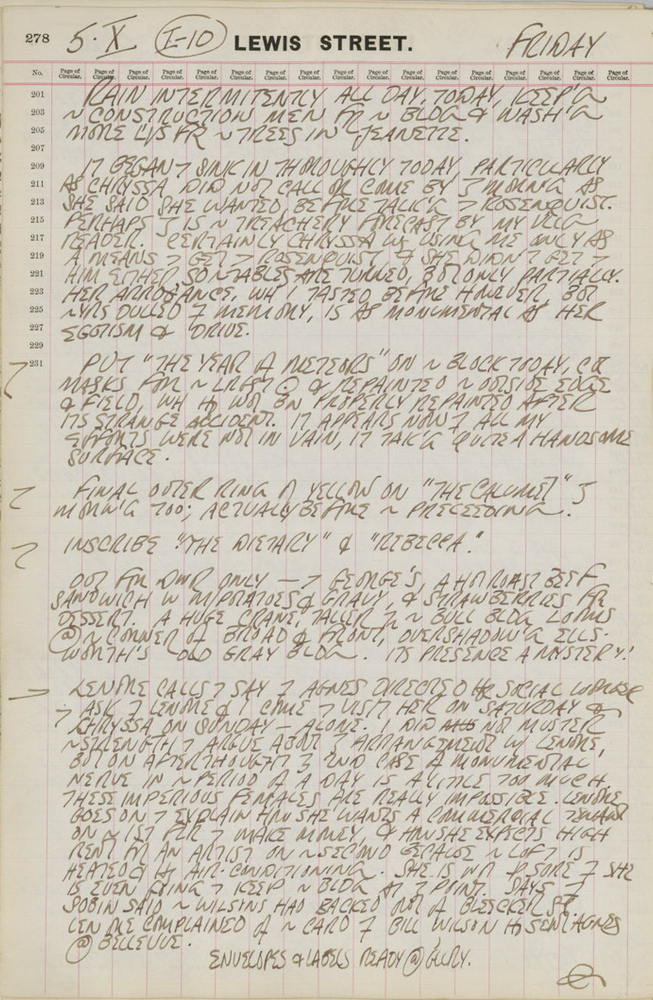 278 5·X I-10 LEWIS STREET. FRIDAY
No. Page of Circular. Page of Circular. Page of Circular. Page of Circular. Page of Circular. Page of Circular. Page of Circular. Page of Circular. Page of Circular. Page of Circular. Page of Circular. Page of Circular. Page of Circular. Page of Circular. Page of Circular. Page of Circular.
201 RAIN INTERMITENTLY ALL DAY, TODAY, KEEP'G
203 ~ CONSTRUCTION MEN FR ~ BLDG & WASH'G
205 MORE L'VS FR ~ TREES IN JEANETTE.
207
209 IT BEGAN T SINK IN THOROUGHLY TODAY, PARTICULARLY
211 AS CHRYSSA DID NOT CALL OR COME BY MORN'G AS
213 SHE SAID SHE WANTED, BEFORE TALK'G ROSENQUIST.
215 PERHAPS IS ~ TREACHERY FORECAST BY MY
217 READER. CERTAINLY CHRYSSA WS USING ME ONLY AS
219 A MEANS T GET T ROSENQUIST, & SHE DIDN'T GET T
221 HIM EITHER SO TABLES ARE TURNED, BUT ONLY PARTIALLY.
223 HER ARROGANCE, WH I TASTED BEFORE HOWEVER, BUT
225 ~ YRS DULLED MEMORY, IS AS MONUMENTAL AS HER
227 EGOTISM & DRIVE.
229
231 PUT "THE YEAR OF METEORS" ON ~ BLOCK TODAY, CUT
MASKS FOR ~ & REPAINTED ~ OUTSIDE EDGE
& FIELD, WH HD NOT BN PROPERLY REPAINTED AFTER
ITS STRANGE ACCIDENT. IT APPEARS NOW ALL MY
EFFORTS WERE NOT IN VAIN, IT TAK'G QUITE A HANDSOME
SURFACE.
FINAL OUTER RING OF YELLOW ON "THE CALUMET"
MORN'G TOO; ACTUALLY BEFORE ~ PRECEEDING.
INSCRIBE "THE DIETARY" & "REBECCA."
OUT FOR DNR ONLY — T GEORGE'S, A HOT ROAST BEEF
SANDWICH W M/POTATOES & GRAVY, & STRAWBERRIES FR
DESSERT. A HUGE CRANE, TALLER ~ BULL BLDG LOOMS
@ ~ CORNER OF BROAD & FRONT, OVERSHADOW'G ELLS-
WORTH'S OLD GRAY BLDG. ITS PRESENCE A MYSTERY!
LENORE CALLS T SAY AGNES DIRECTED HR SOCIAL WORKER
T ASK LENORE & I COME T VISIT HER ON SATURDAY &
CHRYSSA ON SUNDAY — ALONE. I DID NOT MUSTER
~ STRENGTH T ARGUE ABOUT ARRANGEMENT W LENORE,
BUT ON AFTERTHOUGHT 2ND CASE OF MONUMENTAL
NERVE IN ~ PERIOD OF A DAY IS A LITTLE TOO MUCH.
THESE IMPERIOUS FEMALES ARE REALLY IMPOSSIBLE. LENORE
GOES ON T EXPLAIN HOW SHE WANTS A COMMERCIAL TENANT
ON ~ 1ST FLR T MAKE MONEY, & HOW SHE EXPECTS HIGH
RENT FOR AN ARTIST ON ~ SECOND BECAUSE ~ LOFT IS
HEATED & HS AIR-CONDITIONING. SHE IS NOT SURE SHE
IS EVEN GOING T KEEP ~ BLDG AT POINT. SAYS
SOBIN SAID ~ WILSONS HAD BACKED OUT OF BLEECKER ST.
LENORE COMPLAINED OF ~ CARD BILL WILSON HD SENT AGNES
@ BELLEVUE.
ENVELOPES & LABELS READY @ GLLRY.